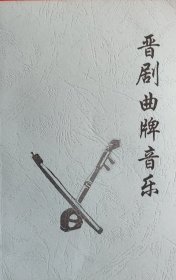 晋剧曲牌音乐